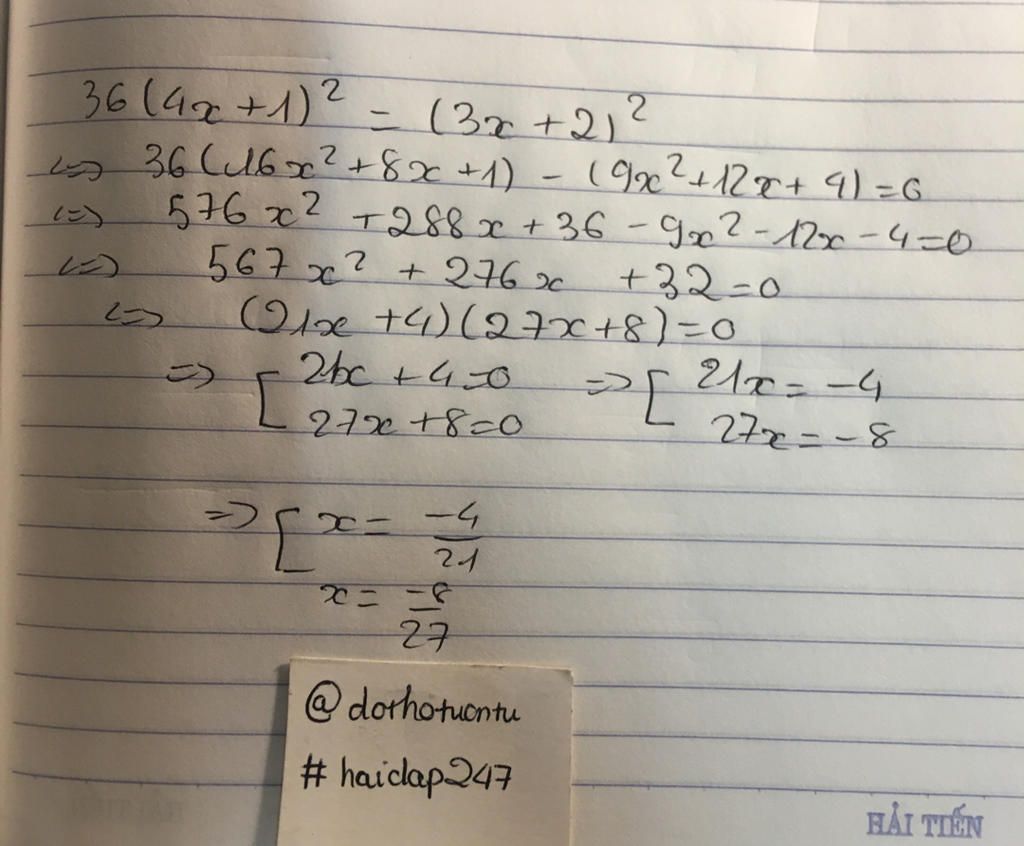 36(4x+1)² = (3x+2)²
<=> 36(16x²+8x+1) - (9x²+12x+4)=0
<=> 576x² +288x+36 -9x²-12x-4=0
<=> 567x² +276x +32=0
<=> (21x +4)(27x+8)=0
=> [ 21x +4=0 => [ 21x = -4
27x+8=0 27x = -8
=> [ x = -4/21
x = -8/27
@dothotuontu
# haidap247
HẢI TIẾN